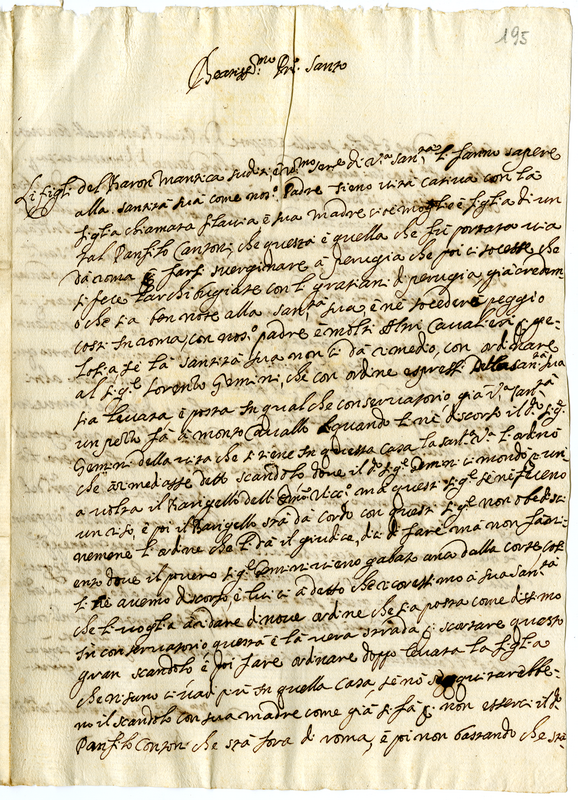 195
Beatiss.mo Pre. Santo
Li figli del Baron Mantica sudditi e ser.e di V.a San.ta li fanno sapere
alla santità sua come nos.o Padre tieno vita cativa con la
figlia chiamata flavia e sua madre moglie e figlia di un
tal Panfilo Canzoni, che questa è quella che fu portata via
da roma è farsi svergimare à perugia che poi ti socesse che
ti fece l'archibugiate con li gratiani di perugia già credim
o che sia ben note alla san.tà sua, è nè socederà peggio
così in roma, con nos.o padre è molti altri Cavalieri, è pe-
lotia se la santità sua non ti dà remedio, con ordinare
al sig.e Lorenzo Gemini, che con ordine espresso della san.ta sua
sia levata è posta in qualche conservatorio già V.a San.tà
un pezzo fà à monte Cavallo quando li nè discorse il d.o sig.e
Gemini della vita che si tiene in questa Casa la sant.a V.a li ordinò
che remediasse detto scandolo dove il d.o sig.e Gemini ci mandò
a volta il Barigello dell' ma questi sig.i se ne fecieno
un riso, è poi il Barigello stà da cordo con questi sig.i non obedisti
nemene li ordine che li dà il giudice, dici di fare ma non fa
ento dove il povero sig.e Gemini vieno gabato anco dalla corte cosi
ti ne avemo discorso è lui ci à detto che ricoressimo à sua San.tà
che li voglia à dare di nove ordine che sia posta come dissimo
in conservatorio questa è la vera strada di scortare questo
gran scandolo è poi fare ordinare doppo levata la figlia
che nisuno ci vadi più in quella Casa, se nò seguitarebbe-
no il scandolo con sua madre come già si fà p. non esserci il d.o
Panfilo Conzoni che stà fora di roma, è poi non bastando che stà